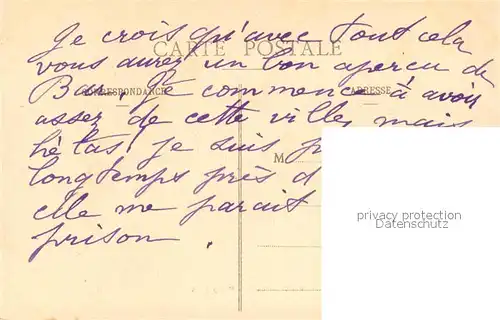 Je crois qu'avec tout cela
CARTE POSTALE
vous aurez un bon aperçu de
CORRESPONDANCE
ADRESSE
Bar. Je commence à avoir
assez de cette ville, mais
hélas! je suis
M
longtemps près d
elle me parait
prison.
privacy protection
Datenschutz